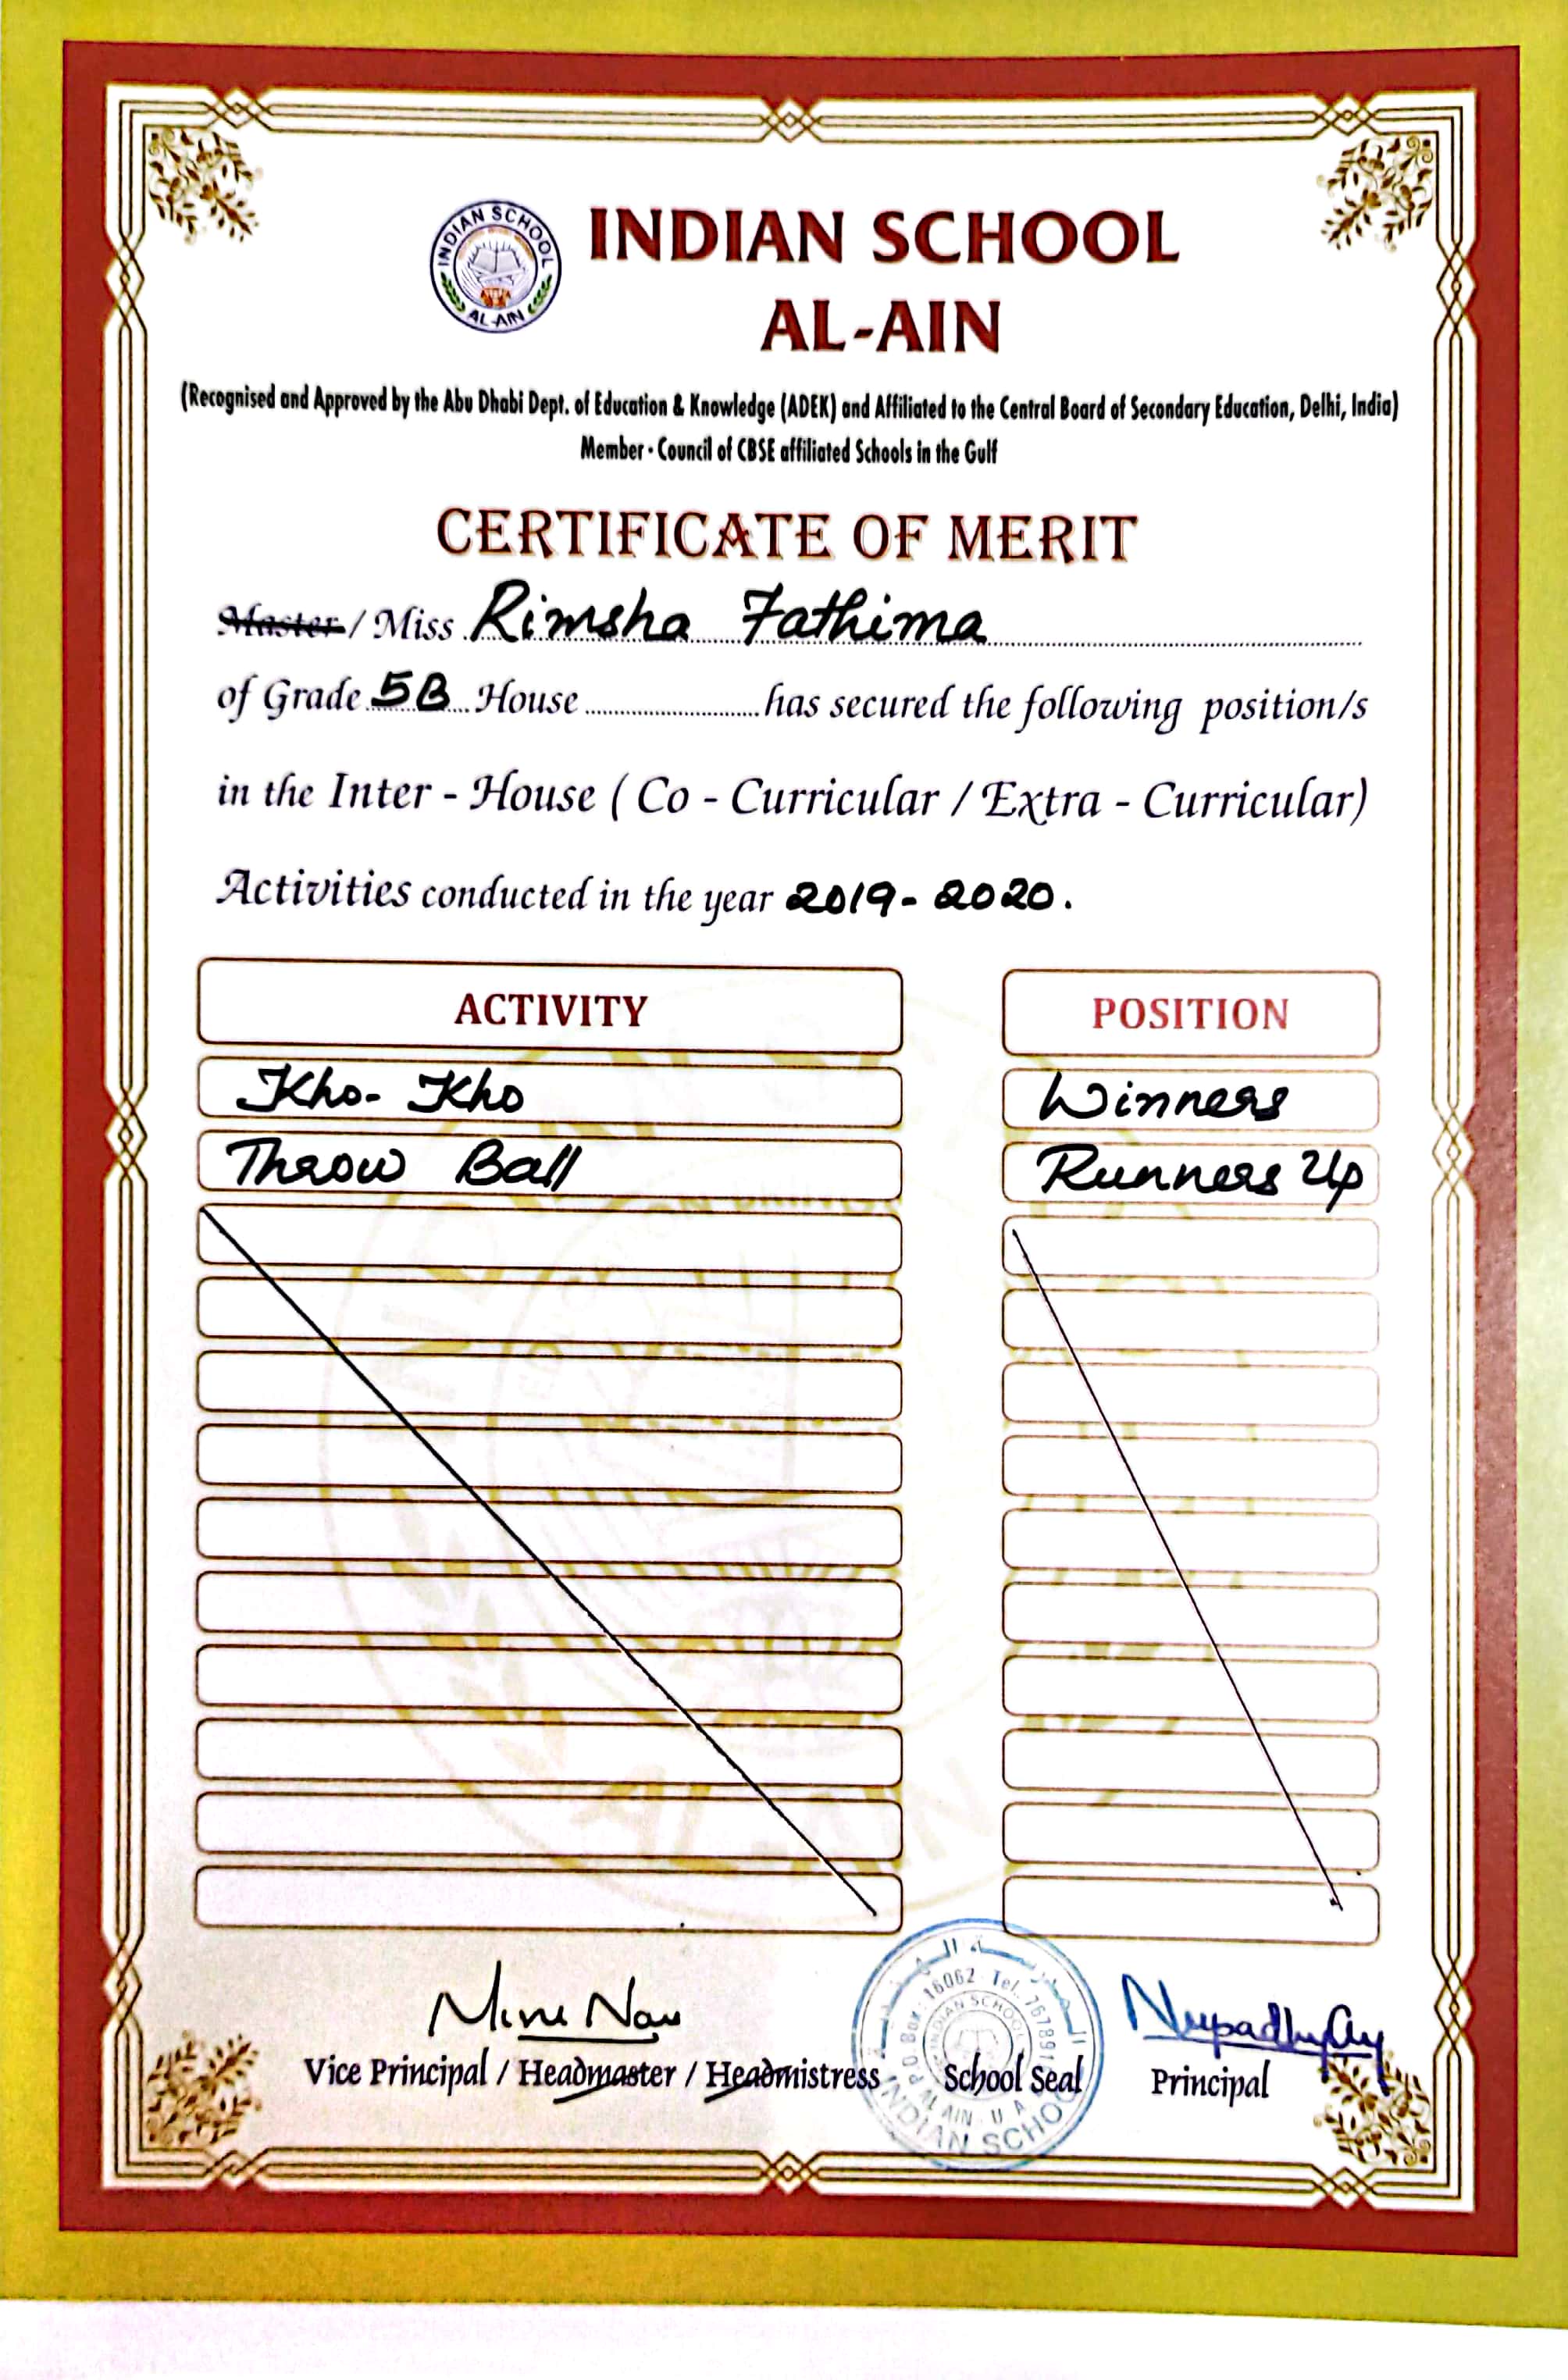 INDIAN SCHOOL
AL-AIN
INDIAN SCHOOL
AL-AIN
(Recognised and Approved by the Abu Dhabi Dept. of Education & Knowledge (ADEK) and Affiliated to the Central Board of Secondary Education, Delhi, India)
Member - Council of CBSE affiliated Schools in the Gulf
CERTIFICATE OF MERIT
Master / Miss Rimsha Fathima
of Grade 5B House has secured the following position/s
in the Inter - House ( Co - Curricular / Extra - Curricular)
Activities conducted in the year 2019-2020.
ACTIVITY POSITION
Kho-Kho Winners
Throw Ball Runners Up
AL-AIN
Vice Principal / Headmaster / Headmistress School Seal Principal
P.O.Box: 16062 Tel. 7678917
INDIAN SCHOOL
AL AIN U A
INDIAN SCHOOL